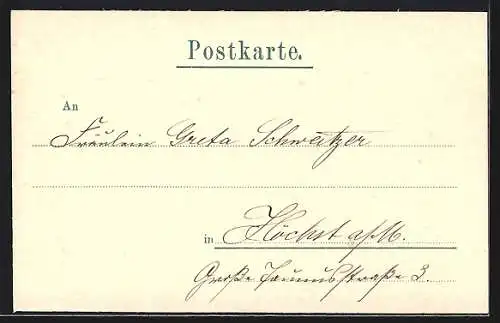 Postkarte.
An
Fräulein Greta Schweitzer
in Höchst a/M.
Große Taunusstraße 3.